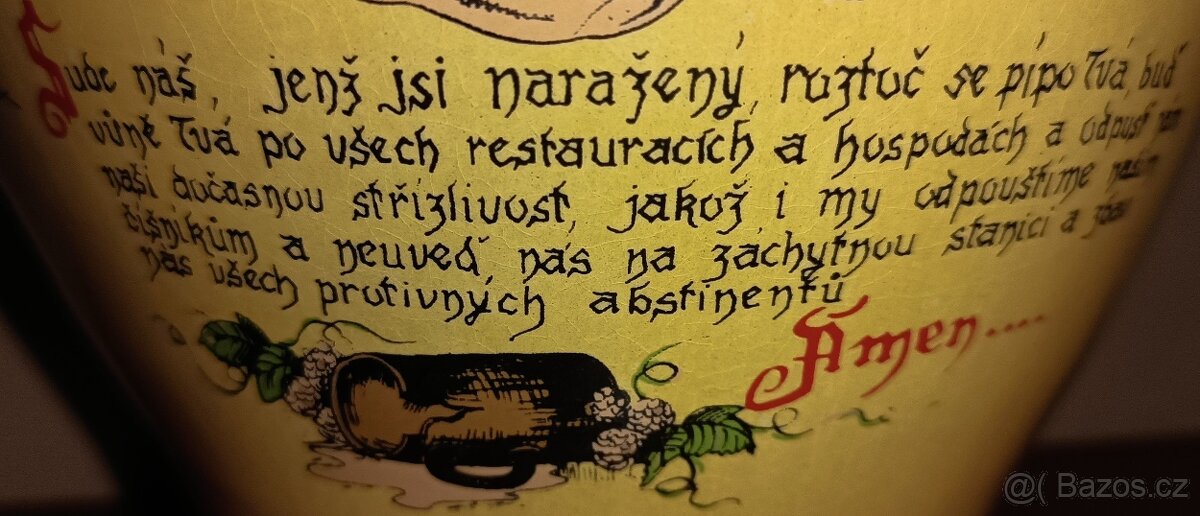 Sude náš, jenž jsi naražený, roztoč se pípo Tvá, buď
vůně Tvá po všech restauracích a hospodách a odpusť nám
naši dočasnou střízlivost, jakož i my odpouštíme našim
číšníkům a neuveď, nás na záchytnou stanici a zbav
nás všech protivných abstinentů
Ámen....
@( Bazos.cz